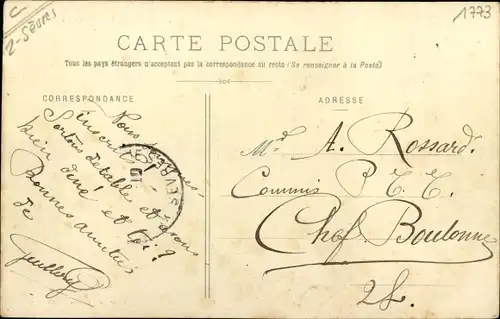 C
2-SÈVRES
1773
CARTE POSTALE
Tous les pays étrangers n'acceptent pas la correspondance au recto (Se renseigner à la Poste)
CORRESPONDANCE
ADRESSE
Nous
inscrits!
Sortons de table et avons
bien diné! et toi?
Bonnes amitiés
de
SEVRES
Mr A. Rossard
Commis P.T.T.
Chef-Boutonne
2S.